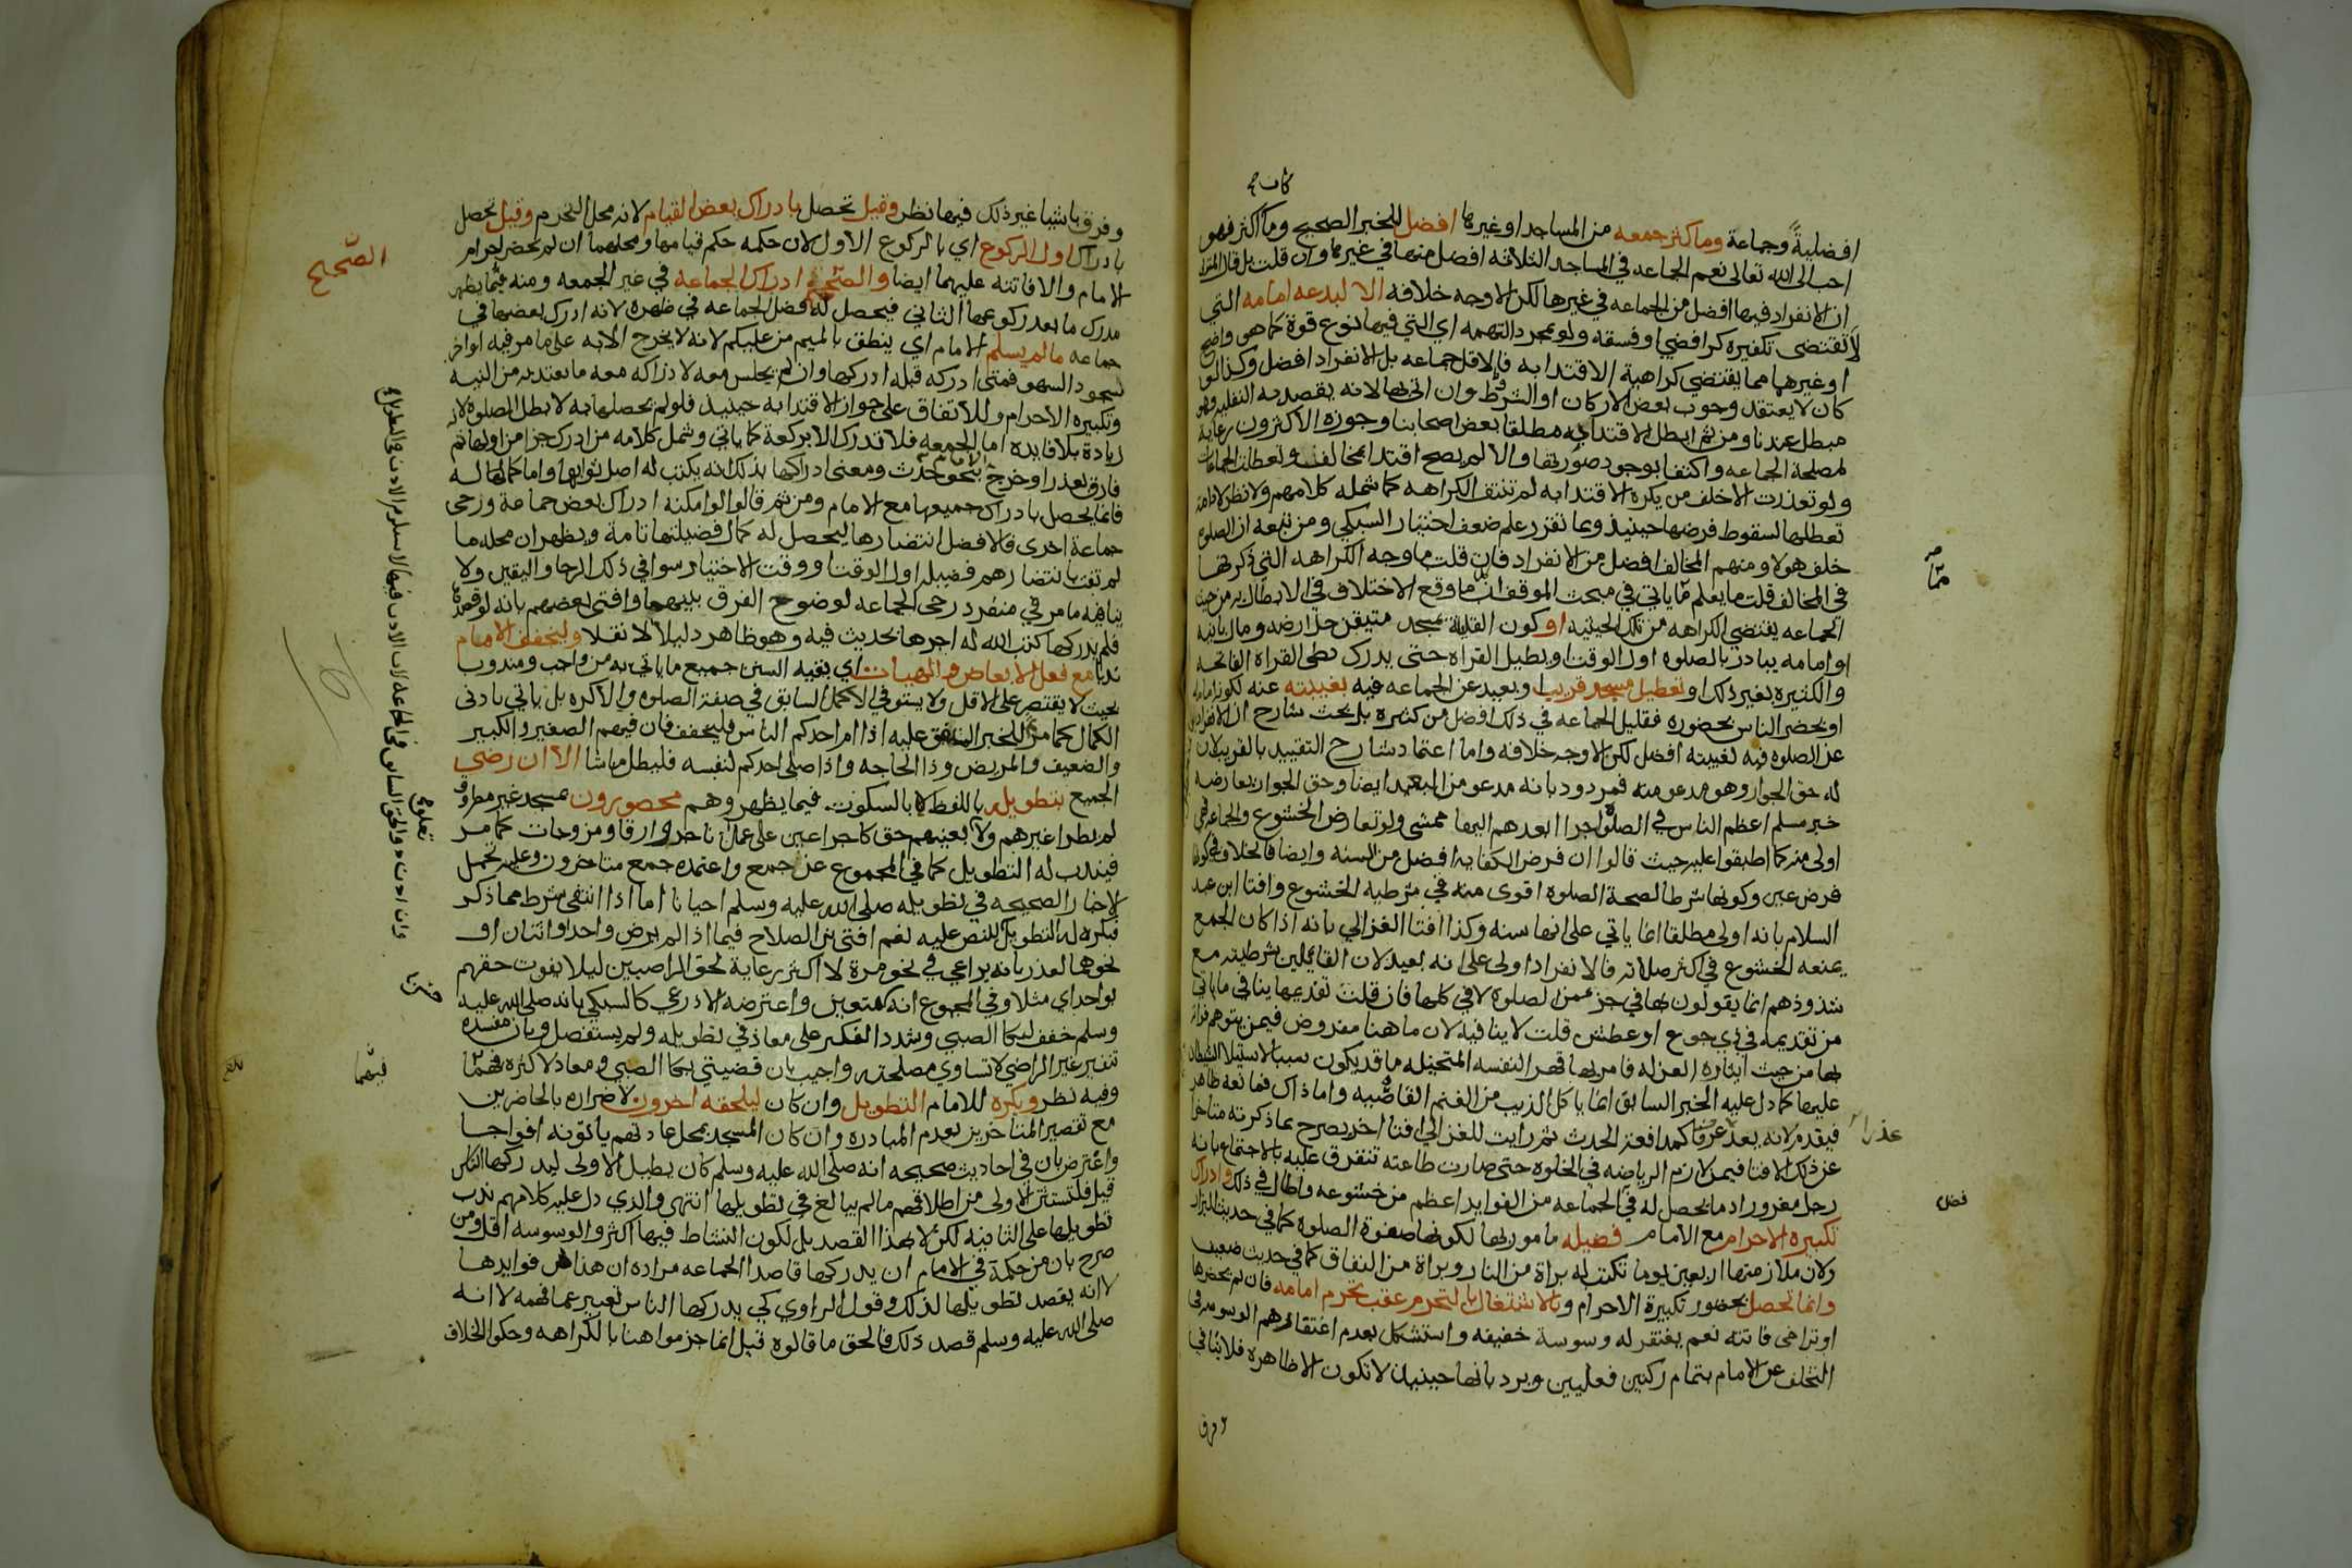 كان ح
افضليةً وجماعة وما كثر جمعه من المساجد او غيرها افضل للخبر الصحيح وما كثر فهو
احب الى الله تعالى نعم الجماعه في المساجد الثلاثه افضل منها في غيرها وان قلت بل قال المتولي
ان الانفراد فيها افضل من الجماعه في غيرها لكن الاوجه خلافه الا لبدعه امامه التي
لا تقتضي تكفيره كرافضي او فسقه ولو بمجرد التهمه اي التي فيها نوع قوة كما هو واضح
او غيرهما مما يقتضي كراهية الاقتدا به فالاقل جماعه بل الانفراد افضل وكذا لو
كان لا يعتقد وجوب بعض الاركان او الشروط وان اتى بها لانه يقصد به النفليه وهو
مبطل عندنا ومن ثم ابطل الاقتدا به مطلقا بعض اصحابنا وجوزه الاكثرون رعاية
لمصلحة الجماعه واكتفا بوجود صورتها والا لم يصح اقتدا بمخالف وتعطلت الجماعات
ولو تعذرت الا خلف من يكره الاقتدا به لم تنتف الكراهه كما شمله كلامهم ولا نظر لادامة
تعطلها لسقوط فرضها حينيذ وبما تقرر علم ضعف اختيار السبكي ومن تبعه ان الصلوة
خلف هولا ومنهم المخالف افضل من الانفراد فان قلت ما وجه الكراهه التي ذكرتها
في المخالف قلت ما يعلم مما ياتي في مبحث الموقف ان ما وقع الاختلاف في الابطال به من حيث
الجماعه يقتضي الكراهه من تلك الحيثيه او كون القليلة بمسجد متيقن حل ارضه ومال بانيه
او امامه يبادر بالصلوة اول الوقت او يطيل القراة حتى يدرك بطي القراة الفاتحه
والكثيره بغير ذلك او تعطيل مسجد قريب او بعيد عن الجماعه فيه بغيبته عنه لكونه امامه
او يحضر الناس بحضوره فقليل الجماعه في ذلك افضل من كثيره بل بحث شارح ان الانفراد
عن الصلوه فيه لغيبته افضل لكن الاوجه خلافه واما اعتماد شارح التقييد بالقريب لان
له حق الجوار وهو مدعو منه فمردود بانه مدعو من البعيد ايضا وحق الجوار يعارضه
خبر مسلم اعظم الناس في الصلوة اجرا ابعدهم اليها ممشى ولو تعارض الخشوع والجماعه فهي
اولى منه كما اطبقوا عليه حيث قالوا ان فرض الكفايه افضل من السنه وايضا فالخلاف في كونها
فرض عين وكونها شرطا لصحة الصلوه اقوى منه في شرطية الخشوع وافتا ابن عبد
السلام بانه اولى مطلقا انما ياتي على انها سنه وكذا افتا الغزالي بانه اذا كان الجمع
يمنعه الخشوع في اكثر صلاته فالانفراد اولى على انه بعيد لان القايلين بشرطيته مع
شذوذهم انما يقولون بها في جزء من الصلوة لا في كلها فان قلت تقديمها ينافي ما ياتي
من تقديمه في ذي جوع او عطش قلت لا ينافيه لان ما هنا مفروض فيمن يتوهم فواته
بها من حيث ايثاره العزله فامر بها قهر النفسه المتخيله ما قد يكون سببا لاستيلا الشيطان
عليها كما دل عليه الخبر السابق انما ياكل الذيب من الغنم القاصيه واما ذاك فمانعه ظاهر
فيقدم لانه يعد عرفا كمدافعة الحدث ثم رايت للغزالي افتا اخر يصرح بما ذكرته متاخرا
عذرا
عن ذلك الافتا فيمن لازم الرياضه في الخلوة حتى صارت طاعته تتفرق عليه بالاجتماع بانه
رجل مغرور اذ ما يحصل له في الجماعه من الفوايد اعظم من خشوعه واطال في ذلك وادراك
تكبيرة الاحرام مع الامام فضيله مامور بها لكونها صفوة الصلوة كما في حديث البزار
ولان ملازمتها اربعين يوما تكتب له براة من النار وبراة من النفاق كما في حديث ضعيف
وانما تحصل بحضور تكبيرة الاحرام وبالاشتغال بالتحرم عقب تحرم امامه فان لم يحضرها
او تراخى فاتته نعم يغتفر له وسوسة خفيفه واستشكل بعدم اغتفارهم الوسوسه في
التخلف عن الامام بتمام ركنين فعليين ويرد بانها حينيذ لا تكون الا ظاهرة فلا ينافي
وفرق باشيا غير ذلك فيها نظر وقيل تحصل بادراك بعض القيام لانه محل التحرم وقيل تحصل
بادراك اول الركوع اي بالركوع الاول لان حكمه حكم قيامها ومحلهما ان لم يحضر احرام
الامام والا فاتته عليهما ايضا والصحيح ادراك الجماعه في غير الجمعه ومنه فيما يظهر
الصحيح
مدرك ما بعد ركوعها الثاني فيحصل له فضل الجماعه في ظهره لانه ادرك بعضها في
جماعه ما لم يسلم الامام اي ينطق بالميم من عليكم لانه لا يخرج الا به على ما مر فيه اواخر
سجود السهو فمتى ادركه قبله ادركها وان لم يجلس معه لادراكه معه ما يعتد به من النيه
وتكبيرة الاحرام وللاتفاق على جواز الاقتدا به حينيذ فلو لم تحصلها به لابطل الصلوة لانه
زيادة بلا فايده اما الجمعه فلا تدرك الا بركعة كما ياتي وشمل كلامه من ادرك جزا من اولها ثم
فارق بعذر او خرج بنحو حدث ومعنى ادراكها بذلك انه يكتب له اصل ثوابها واما كمالها له
فانما يحصل بادراك جميعها مع الامام ومن ثم قالوا لو امكنه ادراك بعض جماعة ورجى
جماعة اخرى فالافضل انتضارها ليحصل له كمال فضيلتها تامة ويظهر ان محله ما
لم تفت بانتضارهم فضيلة اول الوقت او وقت الاختيار سوا في ذلك الرجا واليقين ولا
ينافيه ما مر في منفرد رجى الجماعه لوضوح الفرق بينهما وافتى بعضهم بانه لو قصدها
فلم يدركها كتب الله له اجرها بحديث فيه وهو ظاهر دليلا لا نقلا وليخفف الامام
ندبا مع فعل الابعاض والهيات اي بقيه السنن جميع ما ياتي به من واجب ومندوب
بحيث لا يقتصر على الاقل ولا يستوفي الاكمل السابق في صفة الصلوه والا كره بل ياتي بادنى
الكمال كما مر للخبر المتفق عليه اذا ام احدكم الناس فليخفف فان فيهم الصغير والكبير
والضعيف والمريض وذا الحاجه واذا صلى احدكم لنفسه فليطل ما شا الا ان رضي
الجميع بتطويله باللفظ لا بالسكوت فيما يظهر وهم محصورون بمسجد غير مطروق
لم يطرا غيرهم ولا بعينهم حق كاجراعين على عمل ناجز وارقا ومزوجات كما مر
فيندب له التطويل كما في المجموع عن جمع واعتمده جمع متاخرون وعليه تحمل
الاخبار الصحيحه في تطويله صلى الله عليه وسلم احيانا اما اذا انتفى شرط مما ذكر
فيكره له التطويل للنص عليه نعم افتى ابن الصلاح فيما اذا لم يرض واحد او اثنان او
نحوهما لعذر بانه يراعي في نحو مرة لا اكثر رعاية لحق الراضيين ليلا يفوت حقهم
بواحد اي مثلا وفي المجموع انه متعين واعترضه الاذرعي كالسبكي بانه صلى الله عليه
وسلم خفف لبكا الصبي وشدد النكير على معاذ في تطويله ولم يستفصل وبان مفسدة
تنفير غير الراضي لا تساوي مصلحته واجيب بان قضيتي بكا الصبي ومعاذ لا كثره فيهما
فيهما
وفيه نظر ويكره للامام التطويل وان كان ليلحقه اخرون لاضراره بالحاضرين
مع تقصير المتاخرين بعدم المبادره وان كان المسجد بمحل عادتهم ياتونه افواجا
واعترض بان في احاديث صحيحه انه صلى الله عليه وسلم كان يطيل الاولى ليدركها الناس
قيل فلتستثن الاولى من اطلاقهم ما لم يبالغ في تطويلها انتهى والذي دل عليه كلامهم ندب
تطويلها على الثانيه لكن لا بهذا القصد بل لكون النشاط فيها اكثر والوسوسه اقل ومن
صرح بان من حكمة في الامام ان يدركها قاصدا الجماعه مراده ان هذا من فوايدها
لا انه يقصد تطويلها لذلك وقول الراوي كي يدركها الناس تعبير عما فهمه لا انه
صلى الله عليه وسلم قصد ذلك فالحق ما قالوه قيل انما جزموا هنا بالكراهه وحكوا الخلاف